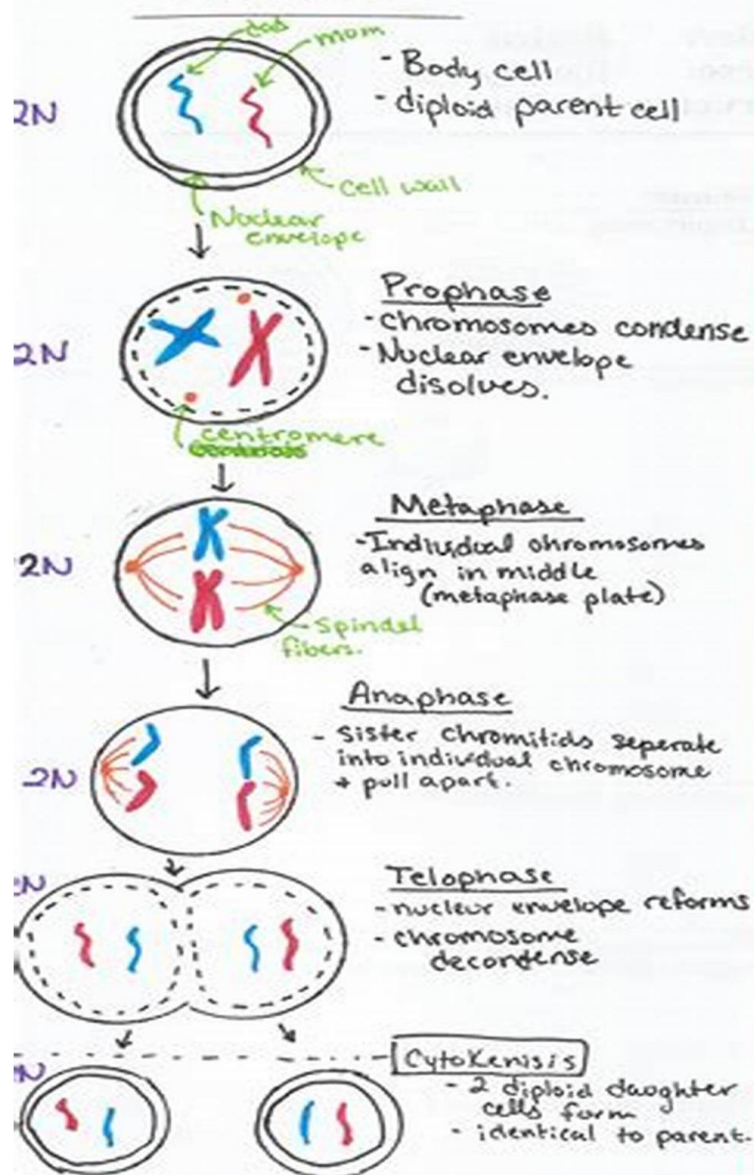 dad
mom
2N
- Body cell
- diploid parent cell
cell wall
Nuclear
envelope
Prophase
- chromosomes condense
2N
- Nuclear envelope
disolves.
centromere
Metaphase
- Individual chromosomes
2N
align in middle
(metaphase plate)
Spindel
fibers.
Anaphase
- Sister chromitids seperate
into individual chromosome
+ pull apart.
2N
Telophase
- nuclear envelope reforms
- chromosome
decondense
CytoKenisis
- 2 diploid daughter
cells form
- identical to parent.